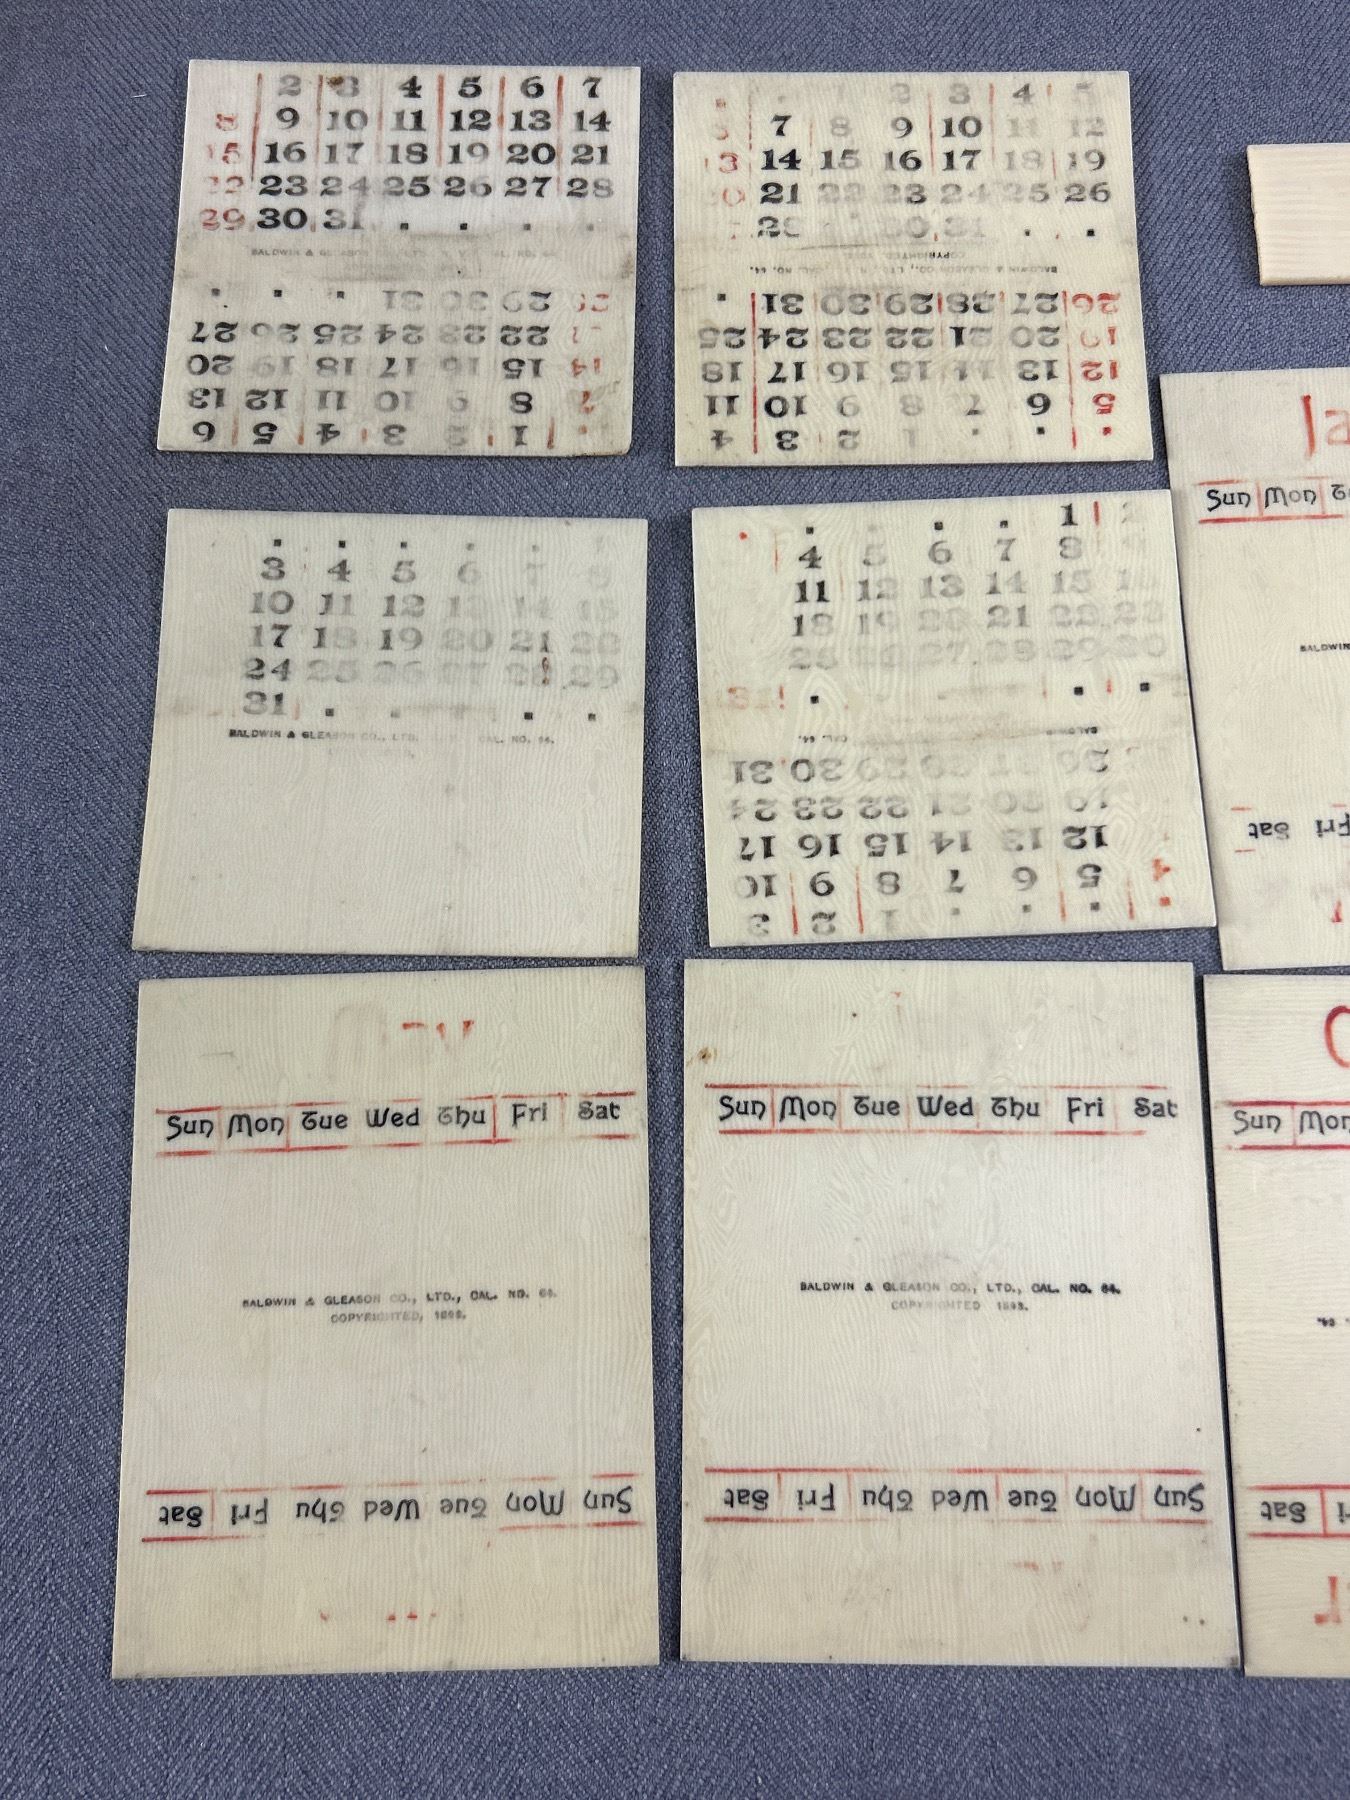 2 3 4 5 6 7
8 9 10 11 12 13 14
15 16 17 18 19 20 21
22 23 24 25 26 27 28
29 30 31
BALDWIN & GLEASON
31 30 29 28
27 26 25 24 23 22
20 19 18 17 16 15 14
13 12 11 10 9 8 7
6 5 4 3 2 1
2 3 4 5
7 8 9 10 11 12
13 14 15 16 17 18 19
20 21 22 23 24 25 26
28 30 31
COPYRIGHTED,
BALDWIN & GLEASON CO., LTD., CAL. NO. 64.
31 30 29 28 27 26
25 24 23 22 21 20 19
18 17 16 15 14 13 12
11 10 9 8 7 6 5
4 3 2 1
3 4 5 6 7 8
10 11 12 13 14 15
17 18 19 20 21 22
24 25 26 27 28 29
31
BALDWIN & GLEASON CO., LTD. CAL. NO. 64.
1 2
4 5 6 7 8
11 12 13 14 15 16
18 19 20 21 22 23
25 26 27 28 29 30
31
CAL. 64. BALDWIN
31 30 29 28 27 26
24 23 22 21 20 19
17 16 15 14 13 12
10 9 8 7 6 5 4
3 2 1
Ja
Sun Mon
BALDWIN
Sat Fri
Sun Mon Tue Wed Thu Fri Sat
BALDWIN & GLEASON CO., LTD., CAL. NO. 64.
COPYRIGHTED, 1898.
Sat Fri Thu Wed Tue Mon Sun
Sun Mon Tue Wed Thu Fri Sat
BALDWIN & GLEASON CO., LTD., CAL. NO. 64.
COPYRIGHTED 1898.
Sat Fri Thu Wed Tue Mon Sun
O
Sun Mon
64.
Sat